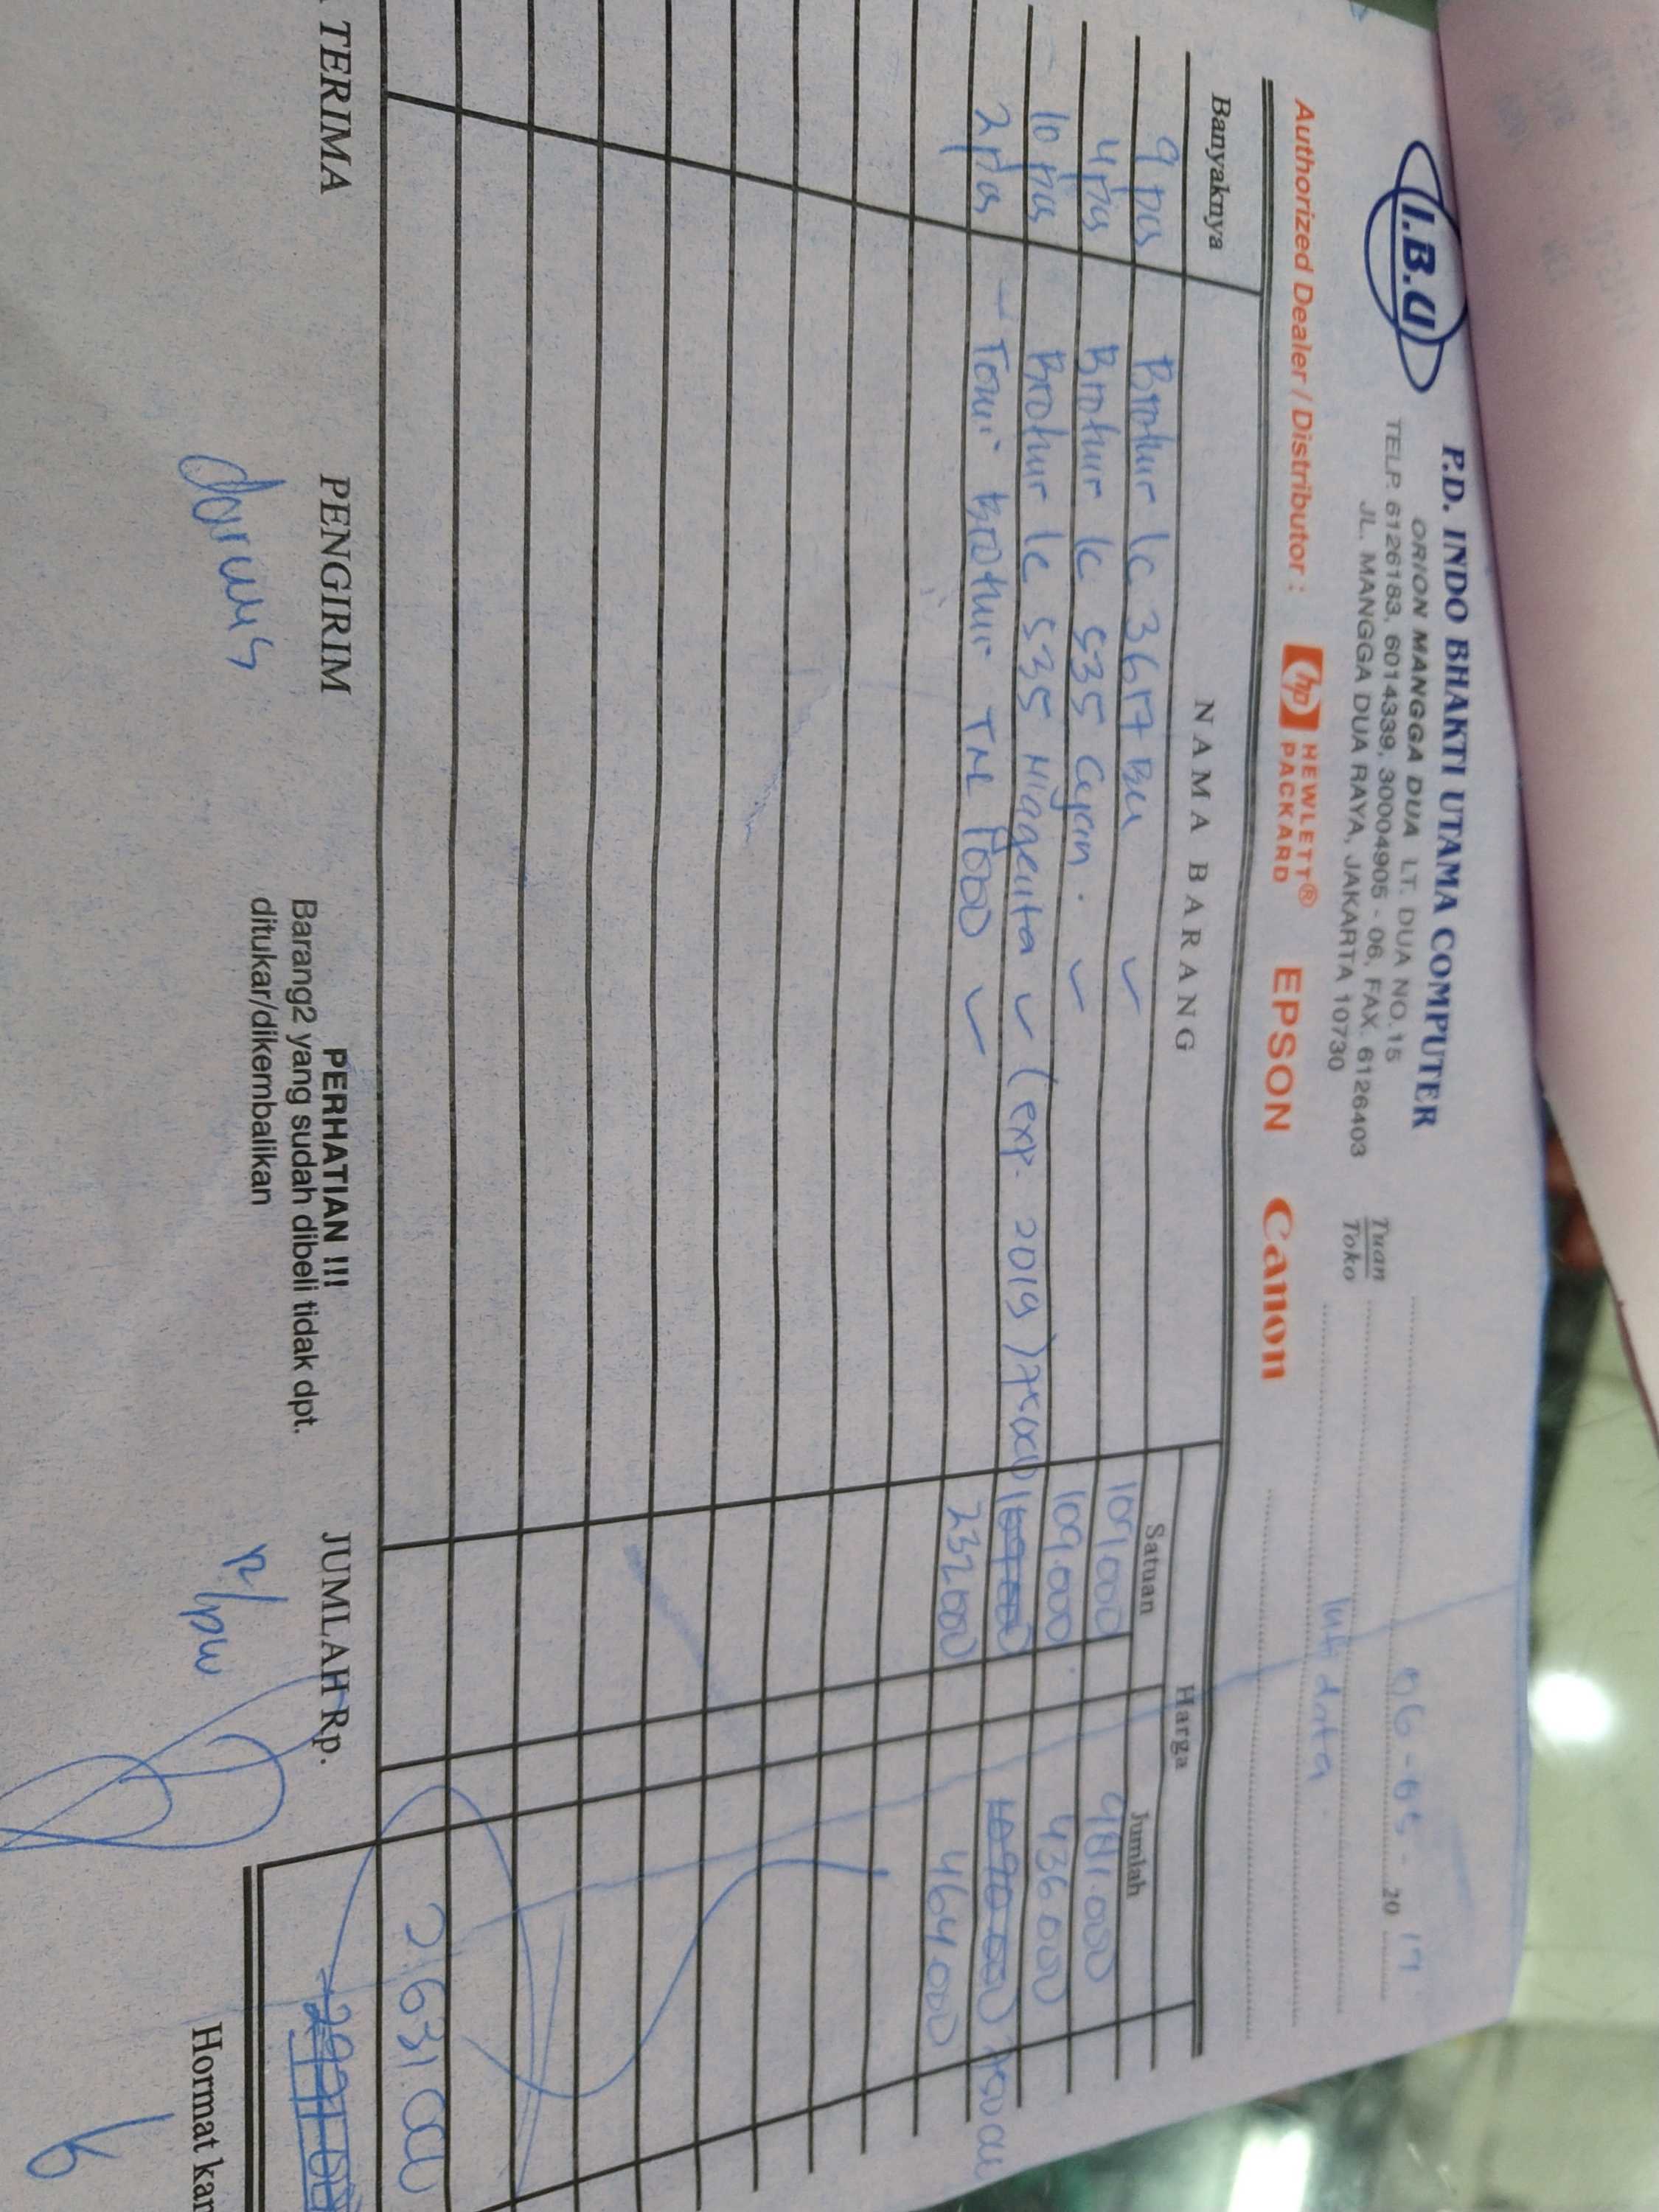 I.B.U
P.D. INDO BHAKTI UTAMA COMPUTER
ORION MANGGA DUA LT. DUA NO.15
TELP. 6126183, 6014339, 30004905 - 06, FAX. 6126403
JL. MANGGA DUA RAYA, JAKARTA 10730
06-05-2019
Tuan
Toko
data
Authorized Dealer / Distributor : hp HEWLETT® PACKARD EPSON Canon
Banyaknya NAMA BARANG Harga
Satuan Jumlah
9 pcs Brother lc 3617 ✓ 109.000 981.000
4 pcs Brother lc 535 Cyan. ✓ 109.000 436.000
10 pcs Brother lc 535 Magenta ✓ (exp. 2019)
2 pcs Toner Brother TN 1000 ✓ 232.000 464.000
2.631.00
TERIMA PENGIRIM PERHATIAN !!! JUMLAH Rp.
Barang2 yang sudah dibeli tidak dpt.
ditukar/dikembalikan
Hormat kam